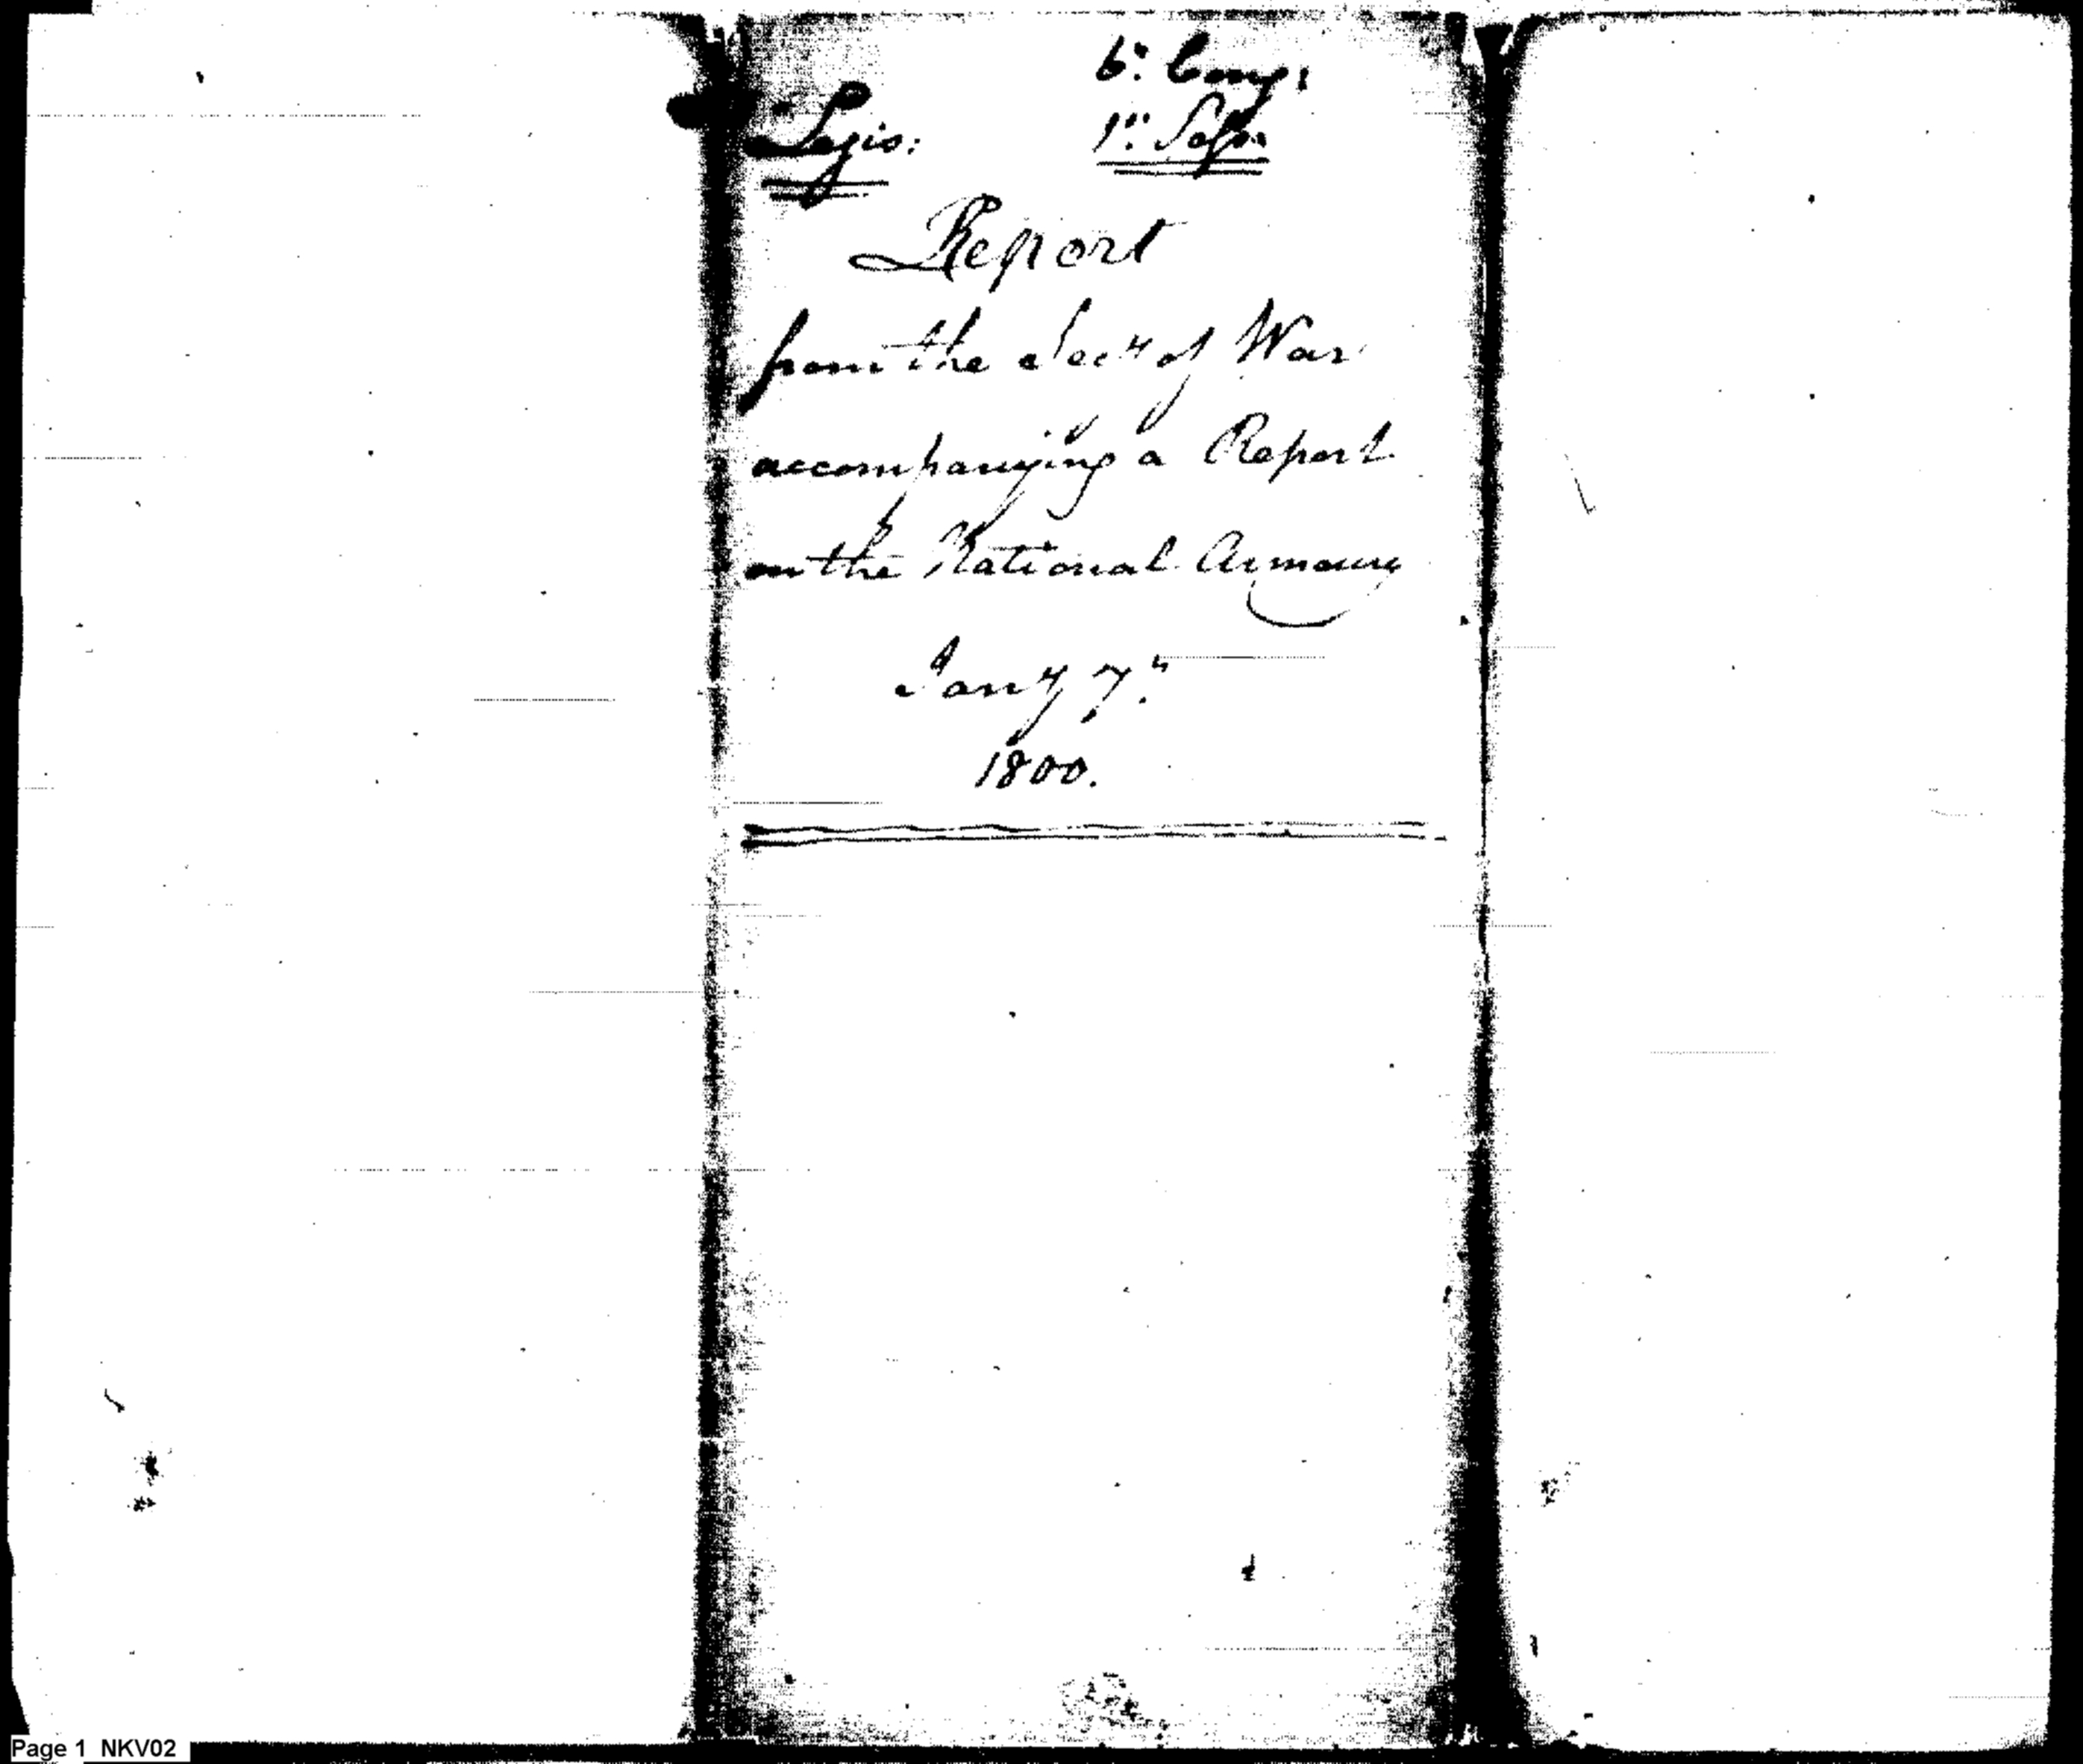 6th Cong:
Legis: 1st Sess:
Report
from the Secy of War
accompanying a Report
on the National Armoury
Jany 7th
1800.
Page 1 NKV02